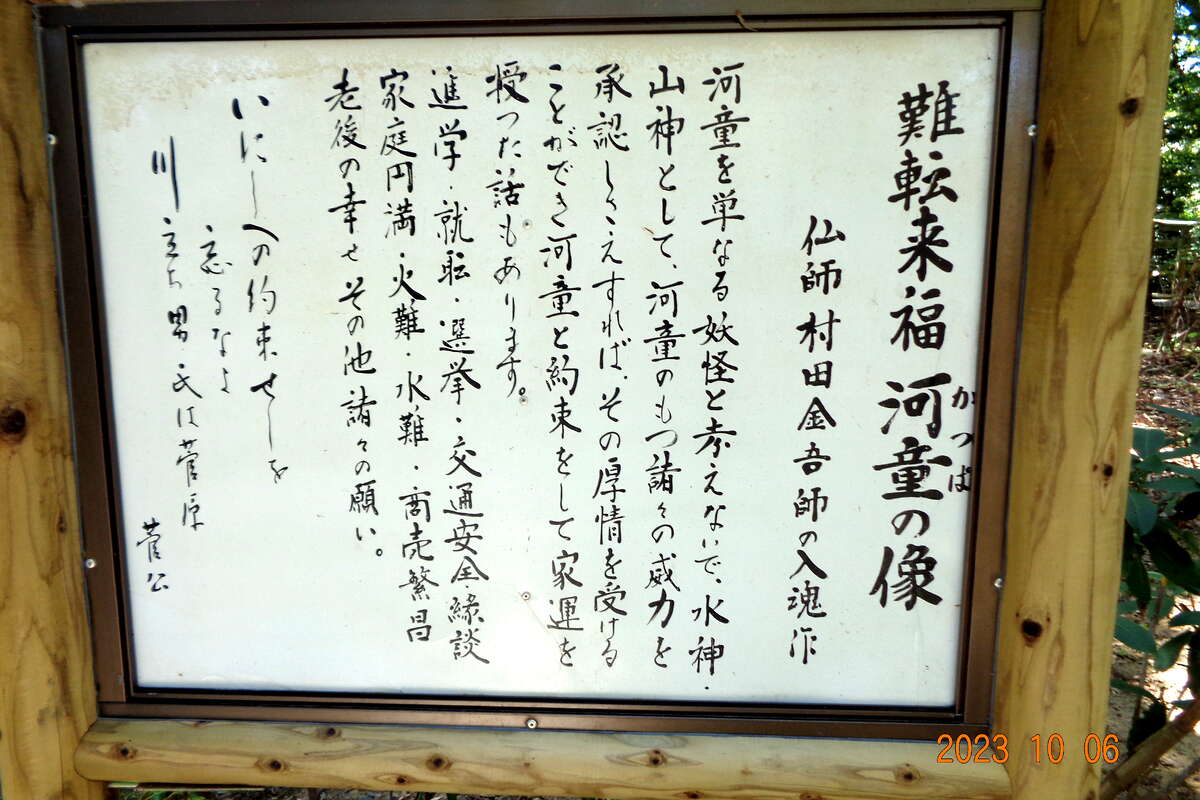 難転来福 河童の像
かっぱ
仏師 村田金吾師の入魂作
河童を単なる妖怪と考えないで、水神・
山神として、河童のもつ諸々の威力を
承認しさえすれば、その厚情を受ける
ことができ河童と約束をして家運を
授った話もあります。
進学・就転・選挙・交通安全・縁談
家庭円満・火難・水難・商売繁昌
老後の幸せその他諸々の願い。
いにしへの約束せしを
忘るなよ
川立ち男氏は菅原
菅公
2023 10 06